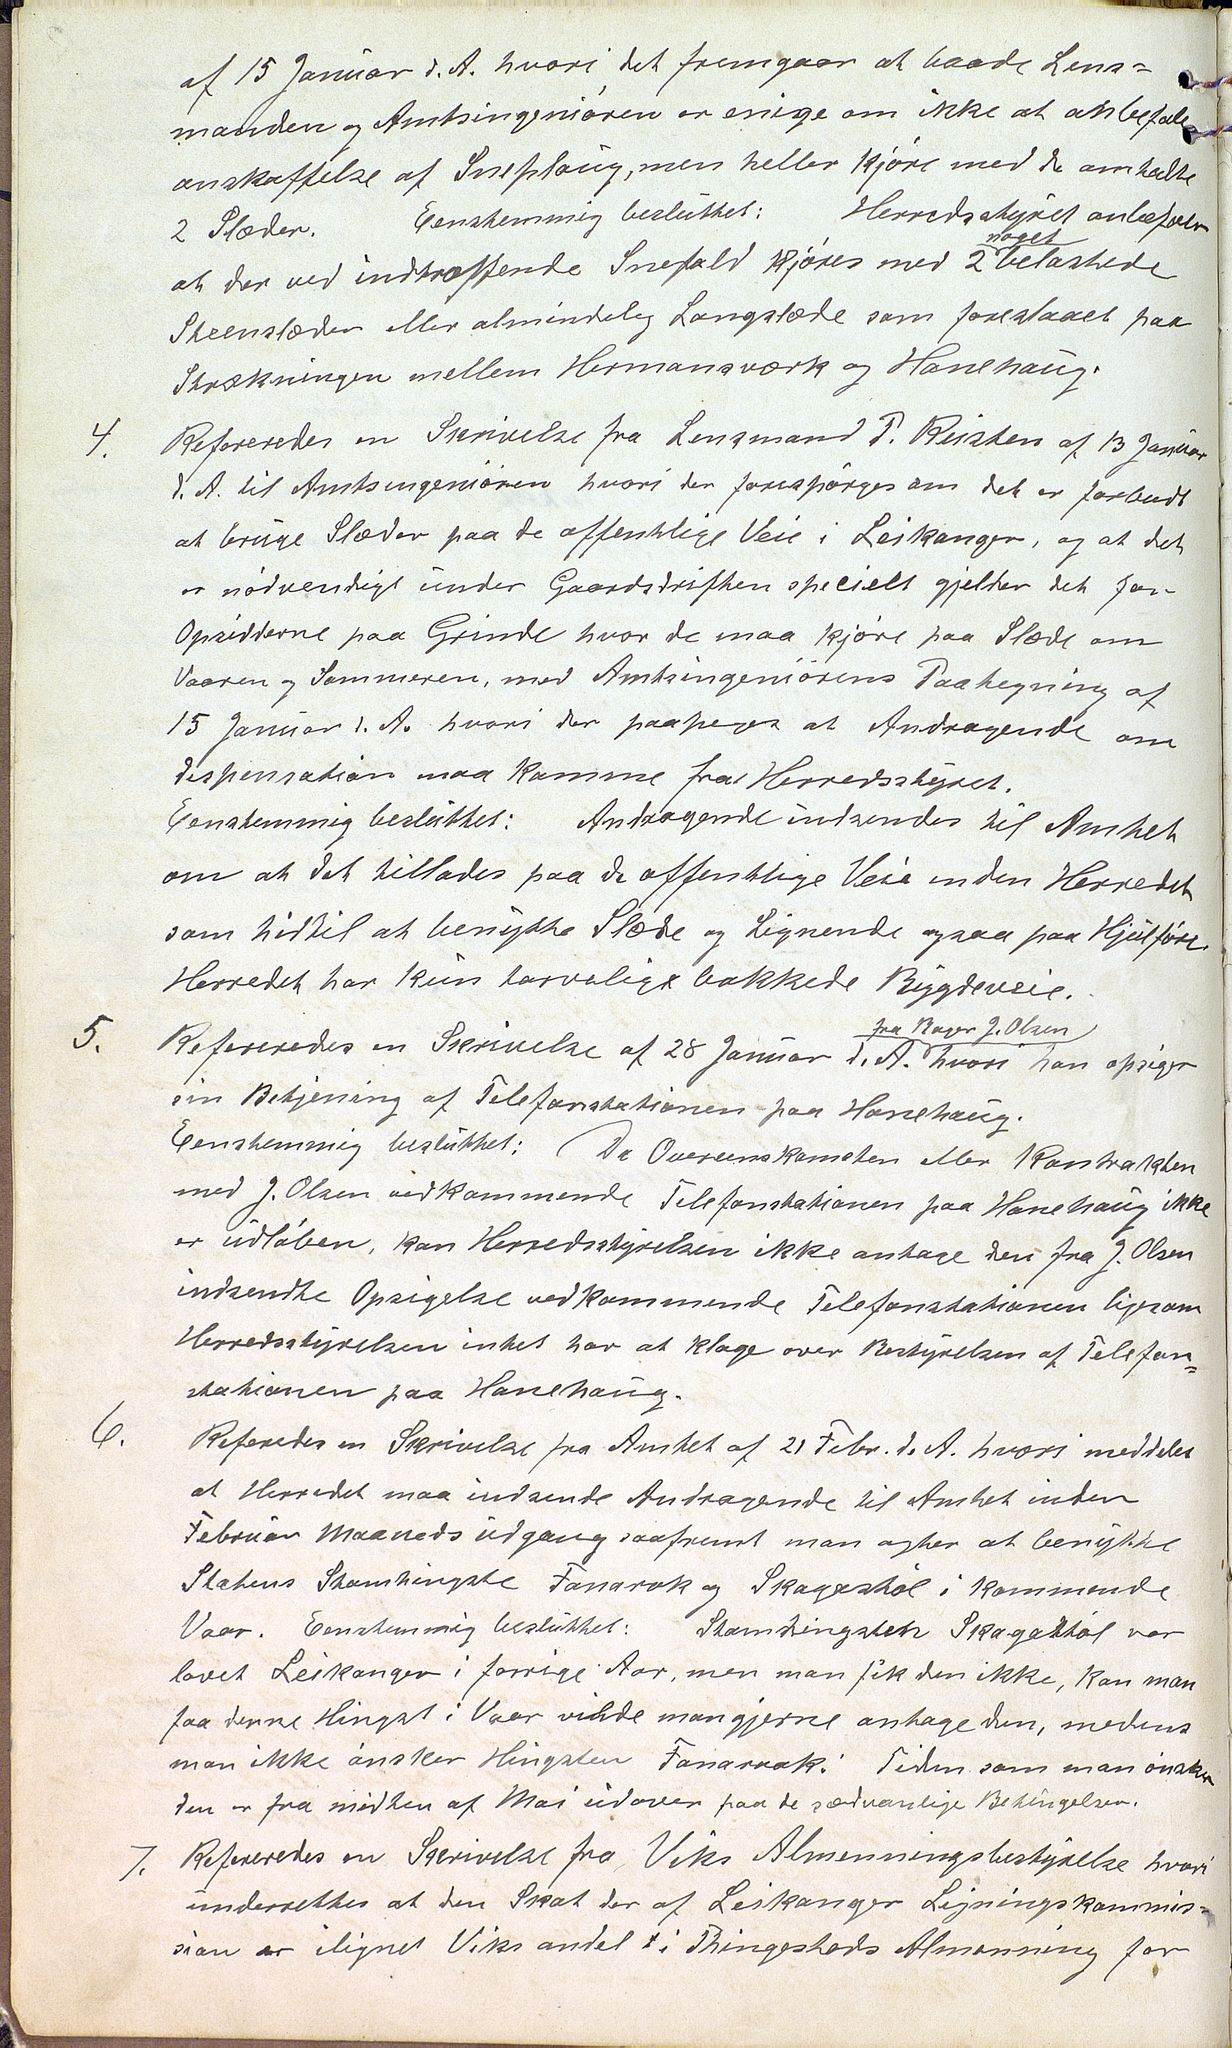 af 15 Januar d. A. hvori det fremgaar at baade Lens=
manden og Amtsingeniøren er enige om ikke at anbefale
anskaffelse af Sneploug, men heller kjøre med de omtalte
2 Slæder. Eenstemmig besluttet: Herredsstyret anbefaler
noget
at der ved indtræffende Snefald kjøres med 2 belastede
Steenslæder eller almindelig Langslæde som foreslaaet paa
Strækningen mellem Hermansværk og Hanehaug.
4. Refereredes en Skrivelse fra Lensmand T. Reisten af 13 Januar
d. A. til Amtsingeniøren hvori der forespørges om det er forbudt
at bruge Slæder paa de offentlige Veie i Leikanger, og at det
er nødvendigt under Gaardsdriften specielt gjelder det for
Opsidderne paa Grinde hvor de maa kjøre paa Slæde om
Vaaren og Sommeren, med Amtsingeniørens Paategning af
15 Januar d. A. hvori der paapeges at Andragende om
dispensation maa komme fra Herredsstyret.
Eenstemmig besluttet: Andragende indsendes til Amtet
om at det tillades paa de offentlige Veie inden Herredet
som hidtil at benytte Slæde og Lignende ogsaa paa Hjulføre.
Herredet har kun tarvelige bakkede Bygdeveie.
fra Bager J. Olsen
5. Refereredes en Skrivelse af 28 Januar d. A. hvori han opsiger
sin Betjening af Telefonstationen paa Hanehaug.
Eenstemmig besluttet: Da Overenskomsten eller Kontrakten
med J. Olsen vedkommende Telefonstationen paa Hanehaug ikke
er udløben, kan Herredsstyrelsen ikke antage den fra J. Olsen
indsendte Opsigelse vedkommende Telefonstationen ligesom
Herredsstyrelsen intet har at klage over Bestyrelsen af Telefon=
stationen paa Hanehaug.
6. Referedes en Skrivelse fra Amtet af 21 Febr. d. A. hvori meddeles
at Herredet maa indsende Andragende til Amtet inden
Februar Maaneds udgang saafremt man agter at benytte
Statens Stamhingste Fanarok og Skagastøl i kommende
Vaar. Eenstemmig besluttet: Stamhingsten Skagastøl var
lovet Leikanger i forrige Aar, men man fik den ikke, kan man
faa denne Hingst i Vaar vilde man gjerne antage den, medens
man ikke ønsker Hingsten Fanarok. Tiden som man ønsker
den er fra midten af Mai udover paa de sædvanlige Betingelser.
7. Refereredes en Skrivelse fra Viks Almenningsbestyrelse hvori
underrettes at den Skat der af Leikanger Ligningskommis=
sion er ilignet Viks andel i Thingesteds Almenning for